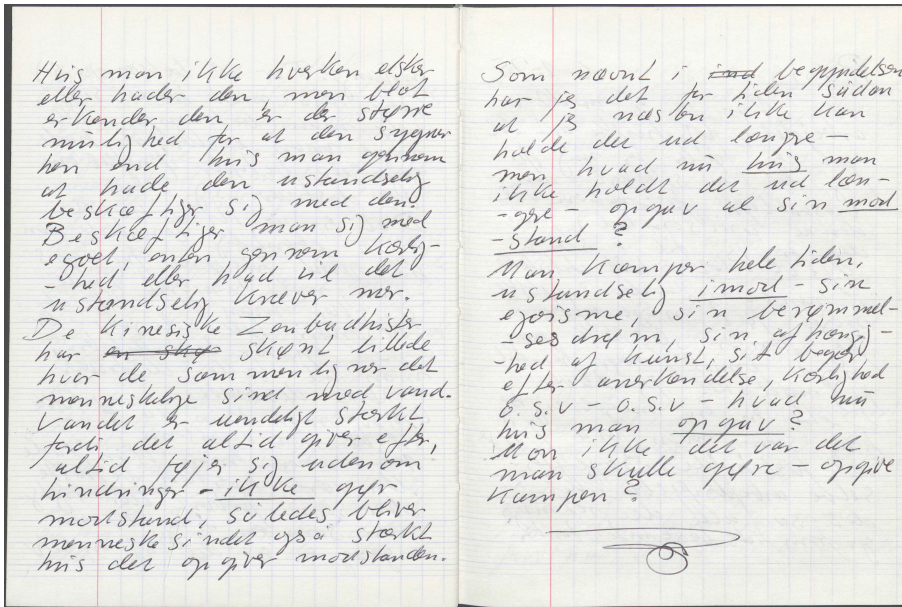 Hvis man ikke hverken elsker
eller hader den, men blot
erkender den, er der større
mulighed for at den sygner
hen end hvis man gennem
at hade den ustandselig
beskæftiger sig med den.
Beskæftiger man sig med
egoet, enten gennem kærlig-
-hed eller had vil det
ustandselig kræve mer.
De Kinesiske Zenbudhister
har en skø skønt billede
hvor de sammenligner det
menneskelige sind med vand.
Vandet er uendeligt stærkt
fordi det altid giver efter,
altid føjer sig udenom
hindringer - ikke gør
modstand, således bliver
menneskesindet også stærkt
hvis det opgiver modstanden.
Som nævnt i ind begyndelsen
har jeg det for tiden sådan
at jeg næsten ikke kan
holde det ud længre -
men hvad nu hvis man
ikke holdt det ud læn-
-gere - opgav al sin mod
-stand ?
Man kæmper hele tiden,
ustandselig imod - sin
egoisme, sin berømmel-
-sesdrøm, sin afhængig-
-hed af kunst, sit begær
efter anerkendelse, kærlighed
o.s.v - o.s.v - hvad nu
hvis man opgav ?
Mon ikke det var det
man skulle gøre - opgive
kampen ?